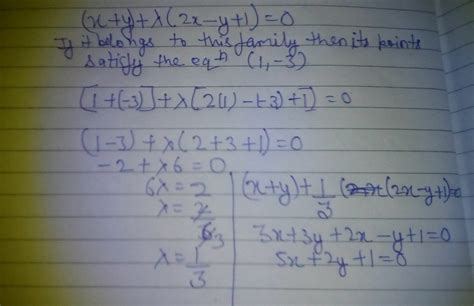 (x+y)+λ(2x-y+1)=0
If it belongs to this family then its points
satisfy the eqn (1,-3)
[1+(-3)]+λ[2(1)-(-3)+1]=0
(1-3)+λ(2+3+1)=0
-2+λ6=0
6λ=2
λ=2/6 3
λ=1/3
(x+y)+1/3(2x-y+1)=0
3x+3y+2x-y+1=0
5x+2y+1=0